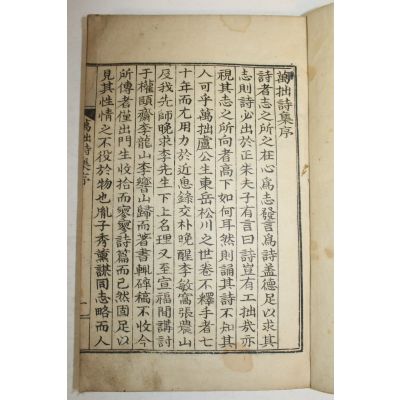 萬拙詩集序
詩者志之所之在心爲志發言爲詩盖德足以求其
志則詩必出於正朱夫子有言曰詩豈有工拙哉亦
視其志之所向者高下如何耳然則誦其詩不知其
人可乎萬拙盧公生東岳松川之世卷不釋手者七
十年而尤用力於近思錄交朴晚醒李敏窩張農山
及我先師晚求李先生下上名理又至宣福間講討
于權頤齋李龍山李響山歸而著書輒碎稿不收今
所傳者僅出門生收拾而寥寥詩篇而已然固足以
見其性情之不役於物也胤子秀薰謀同志略而人
萬拙詩集序
一